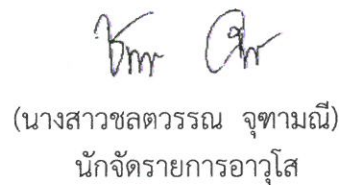 (นางสาวชลตวรรณ จุฑามณี)
นักจัดรายการอาวุโส